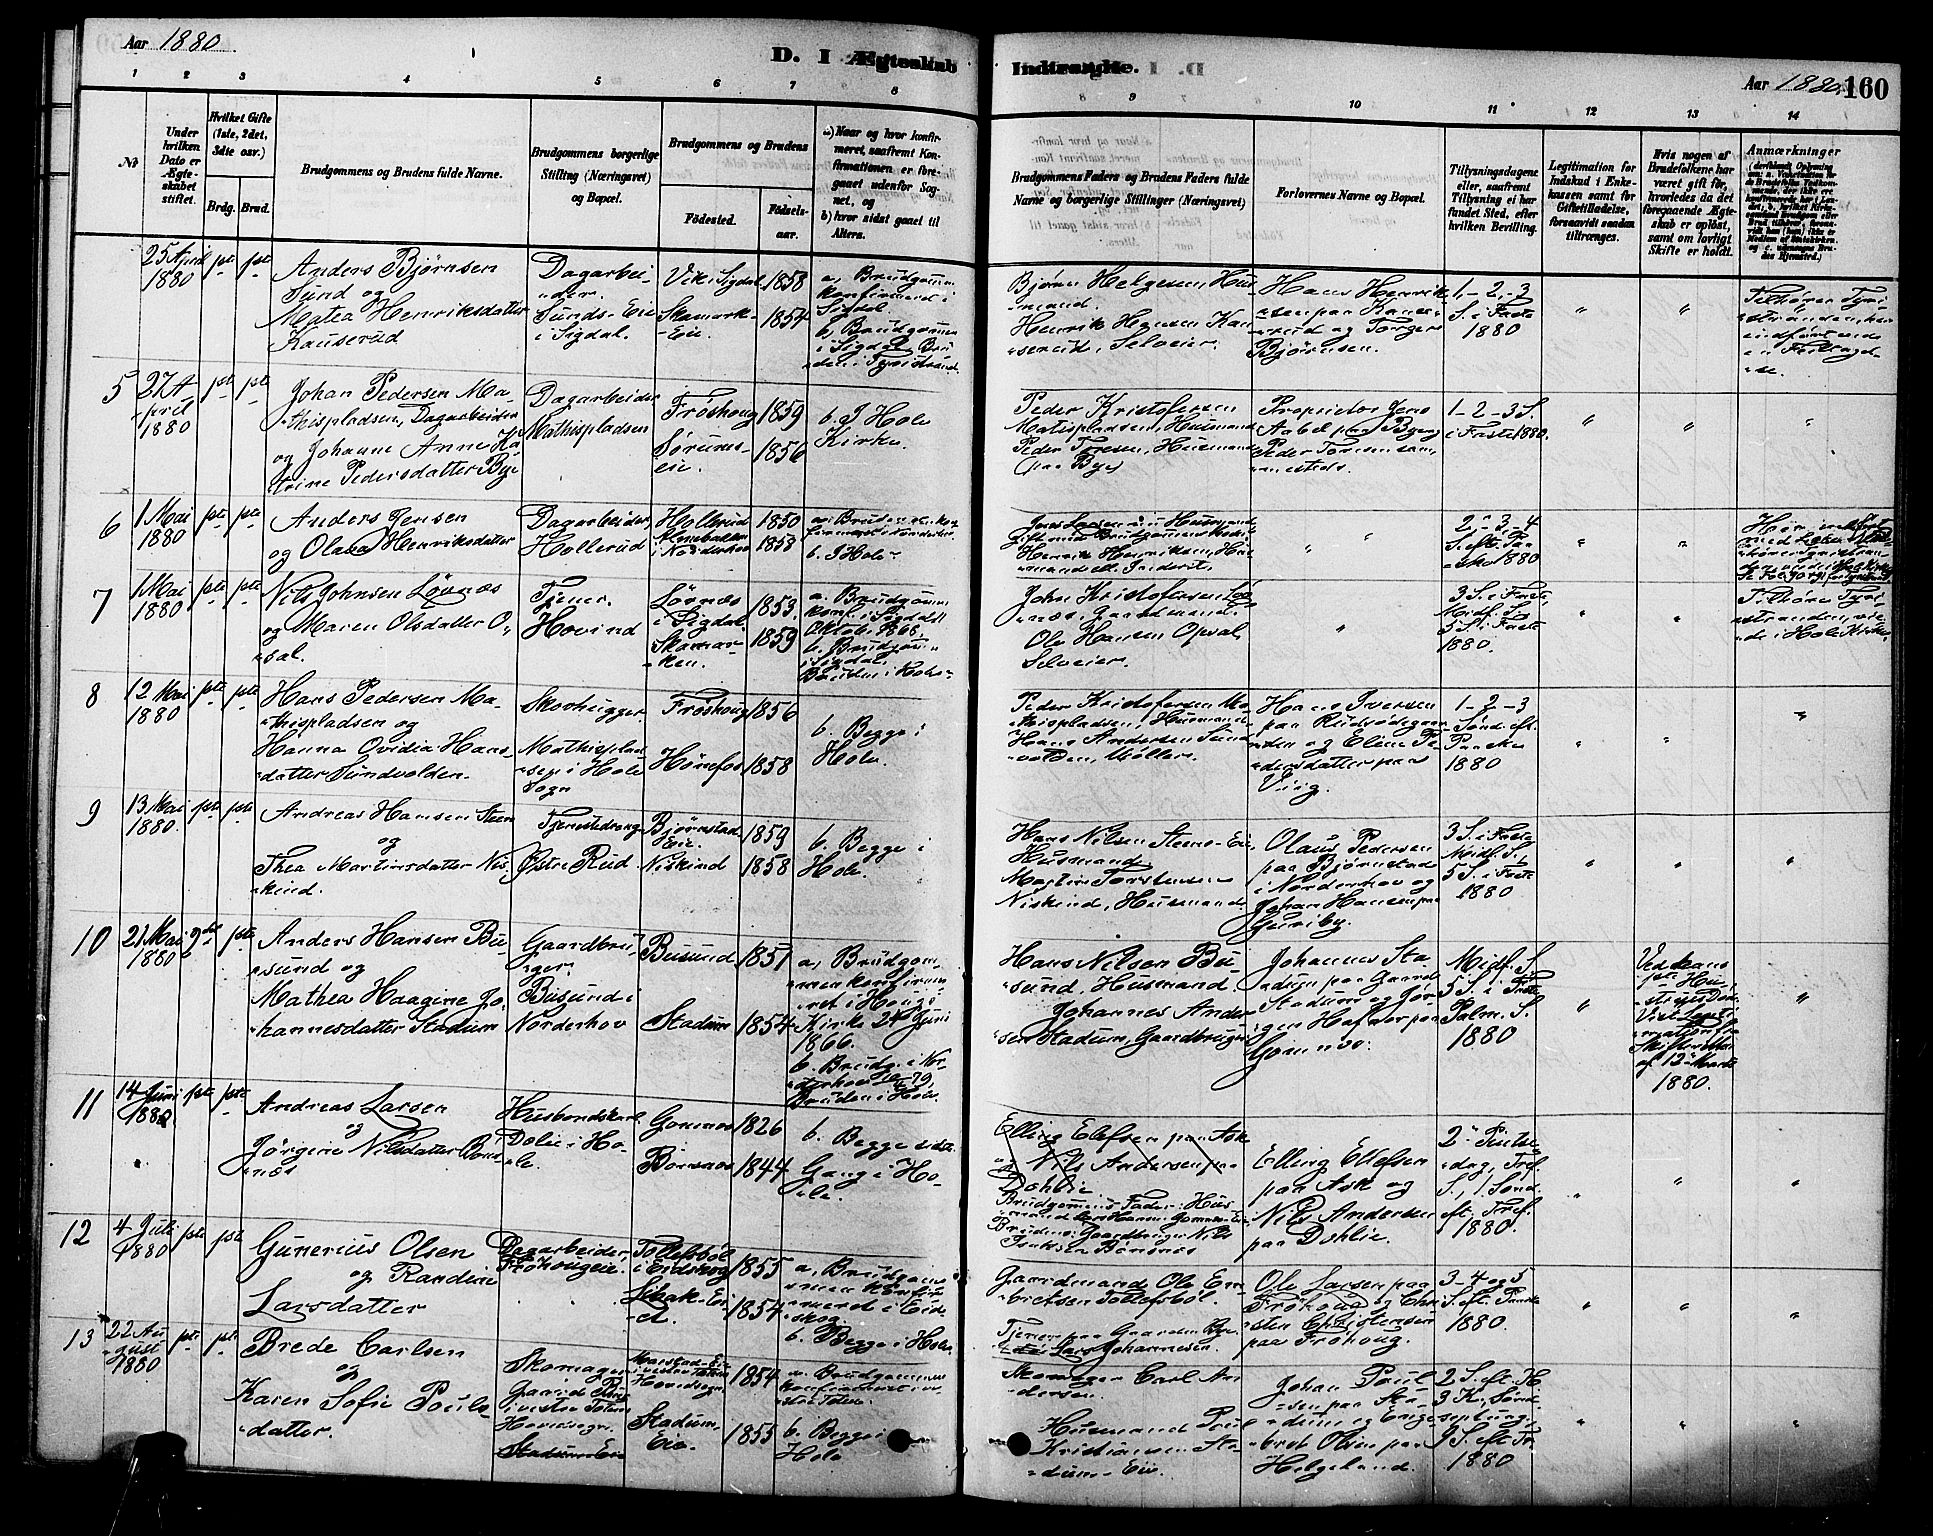 Aar 1880.
D. I Ægteskab
Indtraadte.
Aar 1880.
160
1 2 3 4 5 6 7 8
9 10 11 12 13 14
No
Under hvilken Dato er Ægteskabet stiftet.
Hvilket Gifte (1ste, 2det, 3die osv.)
Brdg. Brud.
Brudgommens og Brudens fulde Navne.
Brudgommens borgerlige Stilling (Næringsvei) og Bopæl.
Brudgommens og Brudens
Fødested.
Fødselsaar.
a) Naar og hvor konfirmeret, saafremt Konfirmationen er foregaaet udenfor Sognet, og
b) hvor sidst gaaet til Alters.
Brudgommens Faders og Brudens Faders fulde Navne og borgerlige Stillinger (Næringsvei)
Forlovernes Navne og Bopæl.
Tillysningsdagene eller, saafremt Tillysning ei har fundet Sted, efter hvilken Bevilling.
Legitimation for Indskud i Enkekassen samt for Giftetilladelse, forsaavidt saadan tiltrænges.
Hvis nogen af Brudefolkene har været gift før, hvorledes da det foregaaende Ægteskab er opløst, samt om lovligt Skifte er holdt.
Anmærkninger
25 April 1880
pte pte
Anders Bjørnsen
Sund og
Matea Henriksdatter
Kauserud
Dagarbei-
der.
Sunds-Eie
i Sigdal.
Vik i Sigdal 1858
Skamark-
Eie. 1854
a, Brudgommen
konfirmeret i
Sigdal.
b, Brudgommen
i Sigdal, Bru-
den i Tyristrand.
Bjørn Helgesen, Hus-
mand.
Henrik Hansen Kau-
serud, Selveier.
Hans Henrik-
sen paa Kause-
rud og Torger
Bjørnsen.
1,-2,-3
S. i Faste
1880
" "
Tilhører Tyri-
stranden, her
indført
5
27 A-
pril
1880
pte pte
Johan Pedersen Ma-
thispladsen, Dagarbeider
og Johanne Anne Ka-
trine Pedersdatter Bye
Dagarbeider
Mathispladsen
Frøshoug 1859
Sørums-
eie. 1856
b. I Hole
Kirke.
Peder Kristofersen
Matispladsen, Husmand
Peder Toresen, Husmand
paa Bye
Proprietær Jens
Aabel paa Bye og
Peder Toresen sam-
mesteds.
1-2-3 S.
i Faste 1880.
" " "
6
1 Mai
1880
pte pte
Anders Jensen
og Olava Henriksdatter
Dagarbeider,
Hollerud
Hollerud 1850
i Norderhov 1853
a. Bruden kon-
firmeret i Norderhov
b. I Hole
Henrik Henriksen, Hus-
mand
" "
2-3-4
S. eft. Paa-
ske 1880
" "
7
1 Mai
1880
pte pte
Nils Johnsen Løvnæs
og Maren Olsdatter O-
psal.
Tjener.
Hovind
Løvnæs
i Sigdal 1853.
Skamar-
ken. 1859
a. Brudgommen
konf. i Sigdal
Oktob. 1868,
b. Brudgom.
i Sigdal,
Bruden i Hole.
John Kristofersen Løv-
næs, Gaardmand.
Ole Hansen Opsal,
Selveier.
"
3 S. i Faste,
Midf. S.
5 S. i Faste
1880.
" "
Tilhører Tyri-
stranden, vie-
de i Hole Kirke.
8
12 Mai
1880
pte pte
Hans Pedersen Ma-
thispladsen og
Hanna Ovidia Hans-
datter Sundvolden.
Skovhugger
Mathisplad-
sen i Hole
Sogn
Frøshoug 1856
Hønefos 1858
b. Begge i
Hole.
Peder Kristofersen Ma-
thispladsen, Husmand
Hans Andersen Sund-
volden, Møller.
Hans Iversen
paa Rudsødegaar-
den og Eline Pe-
dersdatter paa
Viig.
1-2-3
Sønd. eft.
Paaske
1880
" " "
9
13 Mai
1880.
pte pte
Andreas Hansen Steen
og
Thea Martinsdatter Nis-
kind.
Tjenestedreng
Østre Rud
Bjørnstad
Eie. 1859
Niskind 1858
b. Begge i
Hole.
Hans Nilsen Steens-Eie,
Husmand
Martin Torstensen
Niskind, Husmand
Olaus Pedersen
paa Bjørnstad
i Norderhov og
Johan Hansen paa
Guriby.
3 S. i Faste
Midf. S.,
5 S. i Faste
1880
" " "
10
21 Mai
1880
2det pte
Anders Hansen Bu-
sund og
Mathea Haagine Jo-
hannesdatter Stadum
Gaardbru-
ger.
Busund i
Norderhov
Busund 1851
Stadum 1854
a, Brudgom-
men konfirme-
ret i Hougs
Kirke 24 Juni
1866.
b. Brudg. i Nor-
derhov 79,
Bruden i Hole.
Hans Nilsen Bu-
sund, Husmand.
Johannes Ander-
sen Stadum, Gaardbruger
Johannes Sta-
dum paa Gaard
Stadum og Jør-
gen Hafnor paa
Gomnæs.
Midf. S.
5 S. i Faste
Palm. S.
1880
"
Ved hans
pte Hu-
strues Død.
Vist
fra
Skifteretten
af 12 Marts
1880.
"
11
14 Juni
1880
pte pte
Andreas Larsen
og
Jørgine Nilsdatter Bøns-
næs
Husbondskarl
Dolie i Ho-
le.
Gomnæs 1826
Bønsnæs 1844
b. Begge sidste
Gang i Ho-
le.
Elling Elefsen paa Ask
og Nils Andersen paa
Dohlie.
Brudgommens Fader: Hus-
mand Lars Hansen Gomnæs-Eie
Brudens: Gaardbruger Nils
Isaksen Bønsnæs
Elling Ellefsen
paa Ask og
Nils Andersen
paa Dohlie.
2 Pintse-
dag, Tref.
S., 1 Sønd.
eft. Tref.
1880.
" " "
12
4 Juli
1880
pte pte
Gunerius Olsen
og Randine
Larsdatter
Dagarbeider,
Frøhougeie.
Tollefsbøl
i Eidskog 1855
Libak-Ei-
et. 1854
a, Brudgom-
men konfir-
meret i Eid-
skog.
b. Begge i Hole.
Gaardmand Ole Em-
bretsen Tollefsbøl.
Tjener paa Gaarden Bye
Lars Johannesen.
Ole Larsen paa
Frøhoug og Chri-
sten Christensen
paa Frøhoug.
3-4 og 5
S. eft. Paaske
1880.
" " "
13
22 Au-
gust
1880
pte pte
Brede Carlsen
og
Karen Sofie Pouls-
datter.
Skomager
i vestre Toten
Hovidsogn.
Stadum Eie
i vestre Toten
Hovidsogn. 1854
Stadum-
Eie. 1855
a. Brudgommen
konfirmeret i ve-
stre Toten.
b. Begge i
Hole
Skomager Carl An-
dersen.
Husmand Poul
Kristiansen Sta-
dum-Eie.
Johan Poul-
sen paa Sta-
dum og Enge-
bret Olsen paa
Helgeland.
1880
" " "